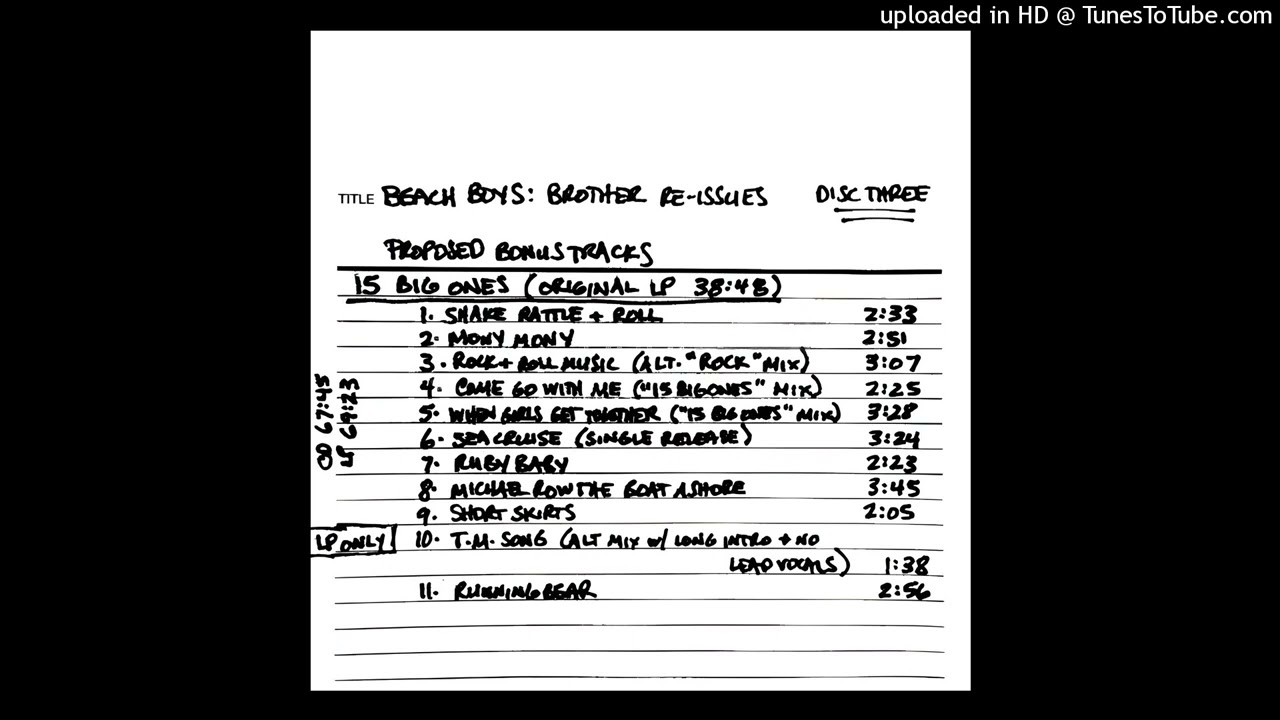 uploaded in HD @ TunesToTube.com
TITLE BEACH BOYS: BROTHER RE-ISSUES DISC THREE
PROPOSED BONUS TRACKS
15 BIG ONES (ORIGINAL LP 38:48)
1. SHAKE RATTLE + ROLL 2:33
2. MONY MONY 2:51
3. ROCK + ROLL MUSIC (ALT. "ROCK" MIX) 3:07
4. COME GO WITH ME ("15 BIG ONES" MIX) 2:25
5. WHEN GIRLS GET TOGETHER ("15 BIG ONES" MIX) 3:28
6. SEA CRUISE (SINGLE RELEASE) 3:24
7. RUBY BABY 2:23
8. MICHAEL ROW THE BOAT ASHORE 3:45
9. SHORT SKIRTS 2:05
LP ONLY 10. T.M. SONG (ALT MIX w/ LONG INTRO + NO
LEAD VOCALS) 1:38
11. RUNNING BEAR 2:56
CD 67:45
LP 69:23